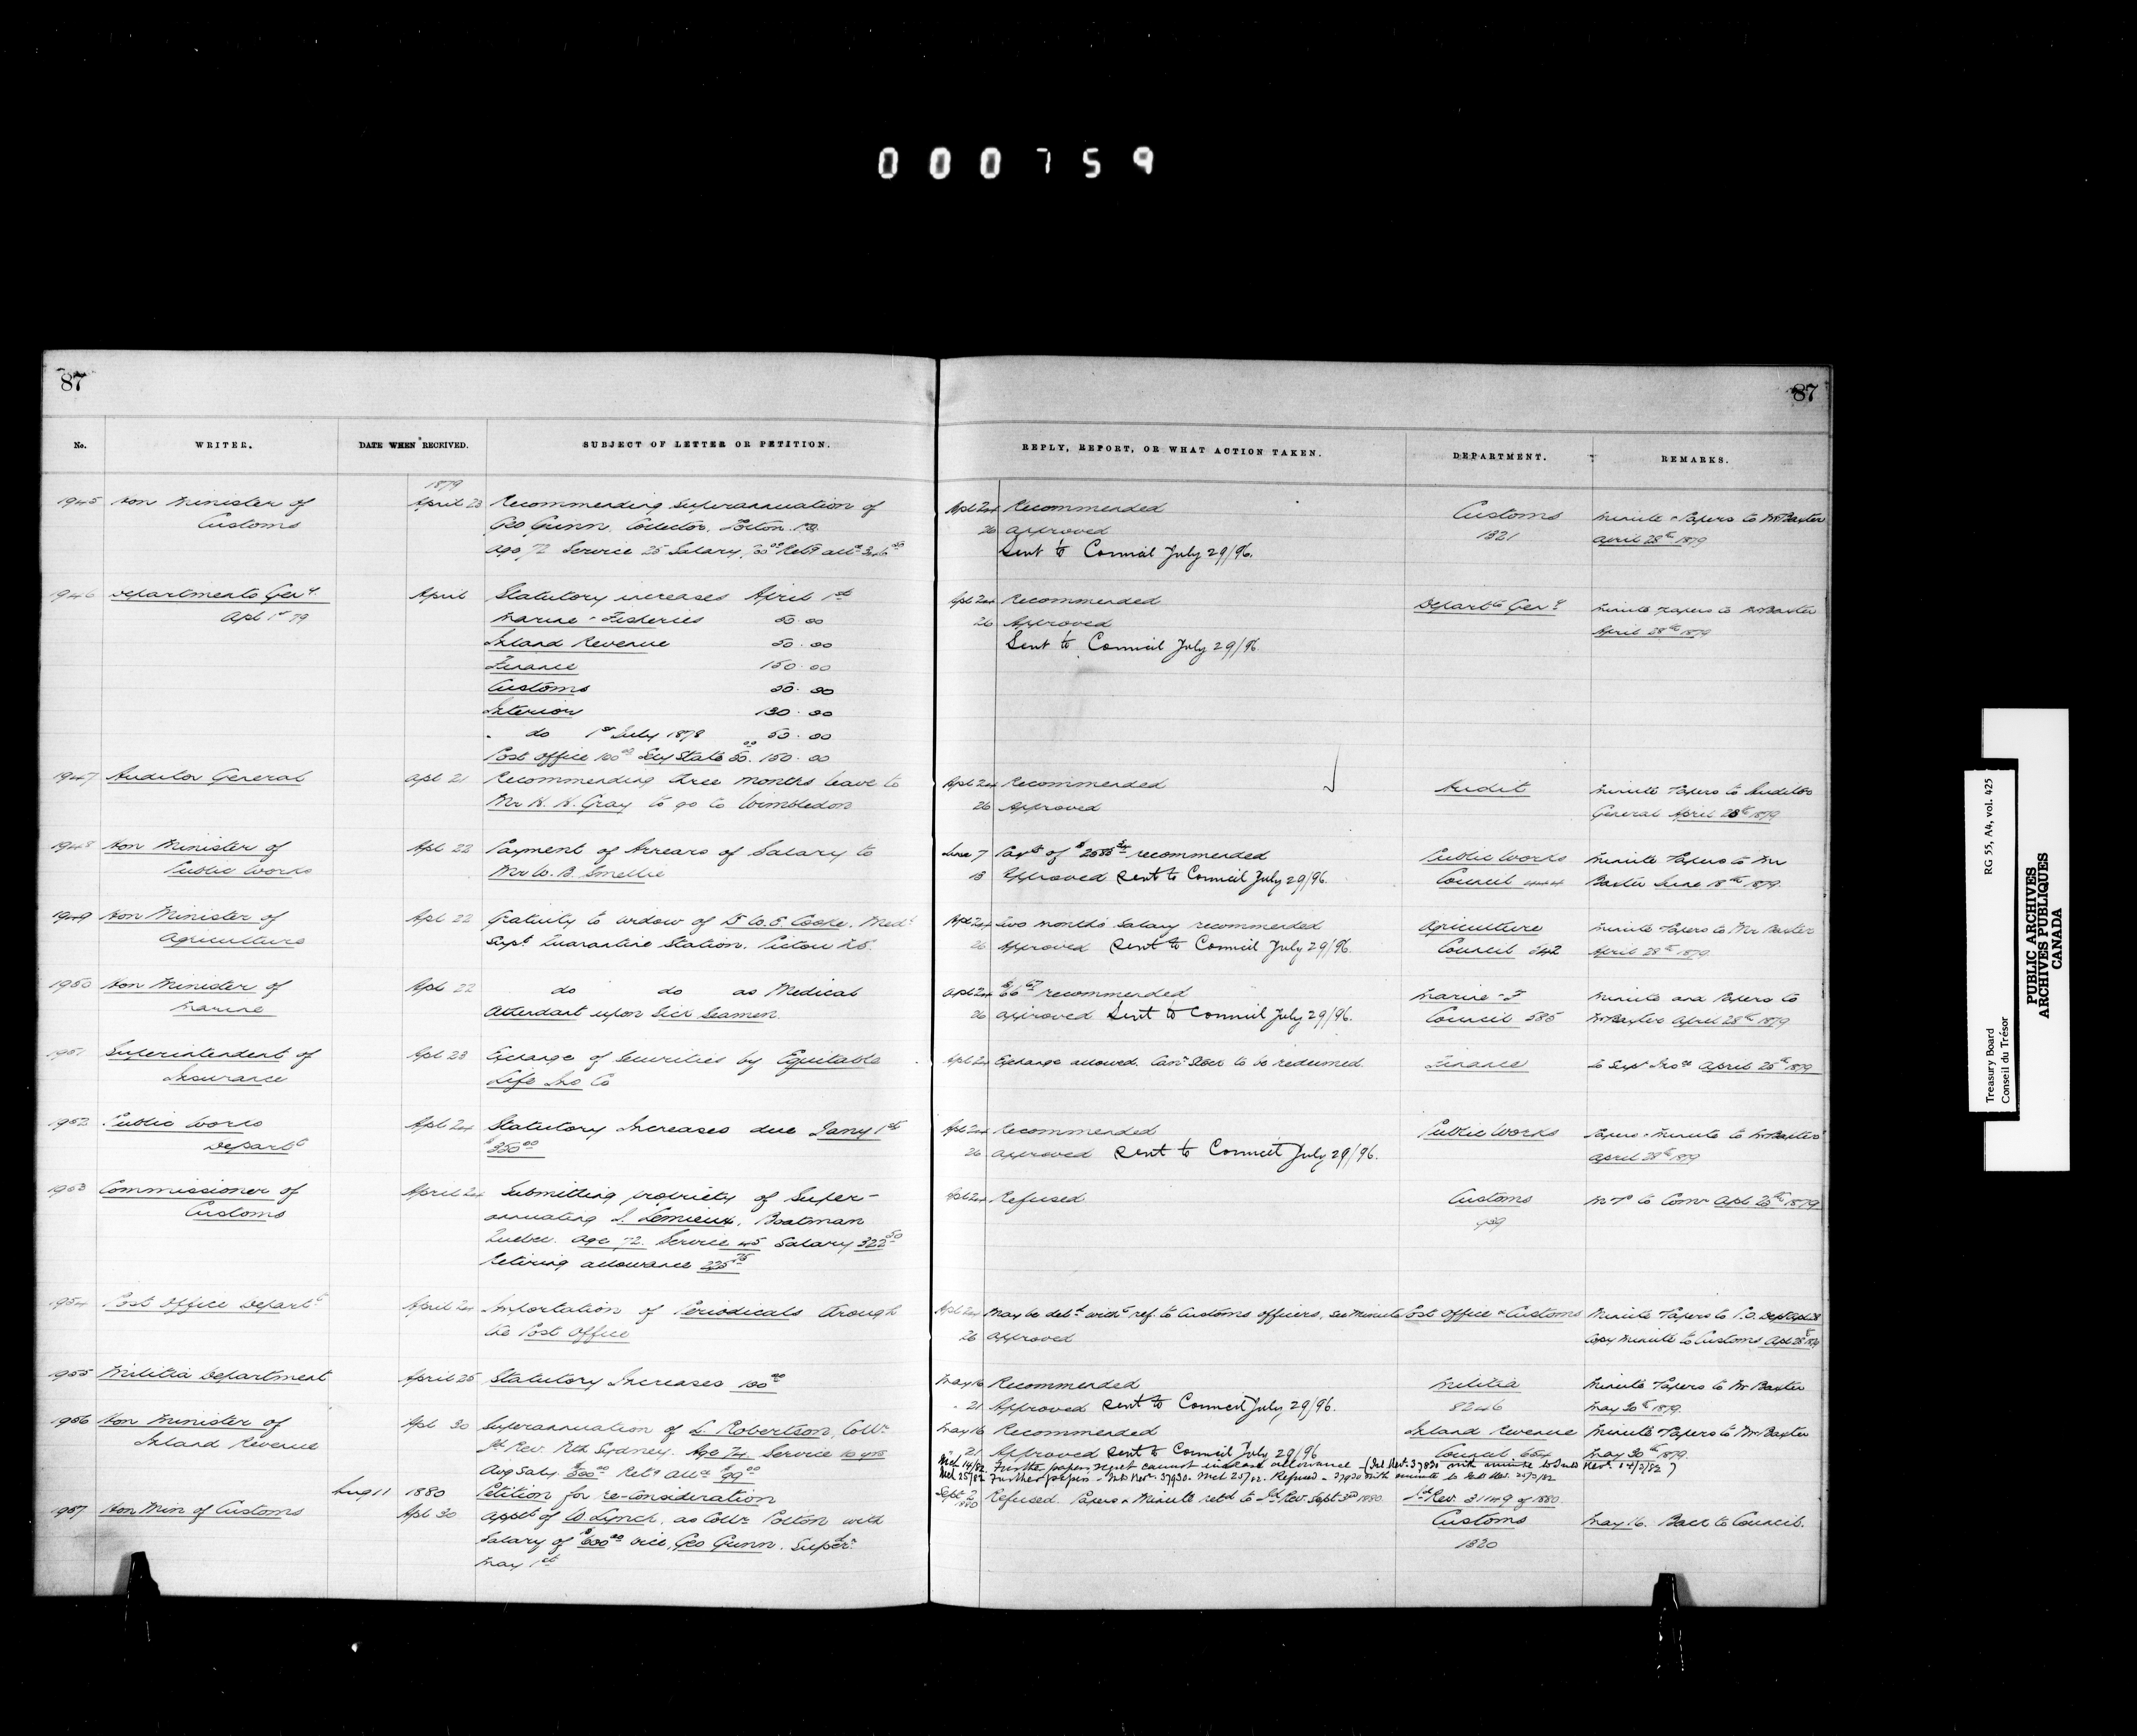 000759
87
87
No.
WRITER.
DATE WHEN RECEIVED.
SUBJECT OF LETTER OR PETITION.
REPLY, REPORT, OR WHAT ACTION TAKEN.
DEPARTMENT.
REMARKS.
1879
1945 Hon Minister of April 23 Recommending Superannuation of Aptl 24 Recommended Customs Minute & Papers to Mr Baxter
Customs Geo Gunn, Collector, Potton, P.Q. 26 Approved 1321 April 28th 1879
Age 72 Service 25 Salary Retg allce
Sent to Council July 29/96.
1946 Departments Genl. April Statutory increases April 1st Aptl 24 Recommended Departts Genl. Minute Papers to Mr Baxter
Apl 1st 79 Marine & Fisheries 50.00 26 Approved April 28th 1879
Inland Revenue 50.00 Sent to Council July 29/96
Finance 150.00
Customs 50.00
Interior 130.00
" do 1st July 1878 50.00
Post Office 100.00 Secy State 50.00 150.00
1947 Auditor General Apl 21 Recommending three months leave to Aptl 24 Recommended Audit Minute Papers to Auditor
Mr H. H. Gray to go to Wimbledon 26 Approved General April 28th 1879
1948 Hon Minister of Apl 22 Payment of Arrears of Salary to June 7 Payt of recommended Public Works Minute Papers to Mr
Public Works Mr W. B. Smellie 13 Approved Sent to Council July 29/96. Council Baxter June 18th 1879.
1949 Hon Minister of Apl 22 Gratuity to widow of Dr W. E. Cooke, Medl Aptl 24 Two months Salary recommended Agriculture Minute Papers to Mr Baxter
Agriculture Supt Quarantine Station, Pictou N.S. 26 Approved Sent to Council July 29/96. Council 242 April 28th 1879.
1950 Hon Minister of Apl 22 do do as Medical Aptl 24 $66.67 recommended Marine & F Minute and Papers to
Marine Attendant upon Sick Seamen. 26 Approved Sent to Council July 29/96. Council 585 Mr Baxter April 28th 1879
1951 Superintendent of Apl 23 Exchange of Securities by Equitable Aptl 24 Exchange allowed. Can. Stock to be redeemed. Finance to Supt Insce April 25th 1879
Insurance Life Ins Co
1952 Public Works Apl 24 Statutory Increases due Jany 1st Aptl 24 Recommended Public Works Papers & Minute to Mr Baxter
Departt $350.00 26 Approved Sent to Council July 29/96. April 28th 1879
1953 Commissioner of April 24 Submitting propriety of Super- Aptl 24 Refused Customs M & P to Comr Apl 25th 1879
Customs annuating J. Lemieux, Boatman 439
Quebec. Age 72. Service 45 Salary 322.50
Retiring allowance 225.75
1954 Post Office Departt April 24 Importation of Periodicals through Aptl 24 May be delt with ref. to Customs officers, see Minute Post Office & Customs Minute Papers to P.O. Dept Apl 28
the Post Office 26 Approved Copy Minute to Customs Apl 28th 1879
1955 Militia Department April 25 Statutory Increases 100.00 May 16 Recommended Militia Minute Papers to Mr Baxter
" 21 Approved Sent to Council July 29/96. 8246 May 30th 1879.
1956 Hon Minister of Apl 30 Superannuation of L. Robertson, Collr May 16 Recommended Inland Revenue Minute Papers to Mr Baxter
Inland Revenue Id Rev. Nth Sydney. Age 74 Service 10 yrs " 21 Approved Sent to Council July 29/96 Council 664 May 30th 1879.
Avg Saly. $500.00 Retg Allce $99.00
Mch 14/82. Further papers. Regret cannot increase allowance - (Inl Rev. 37830 with minute to Inld Rev. 14/3/82)
Mch 25/82 Further papers - Inld Rev. 37930. Mch 25/82. Refused - 37930 with minute to Inld Rev. 25/3/82
Aug 11 1880 Petition for re-consideration Sept 2 1880 Refused. Papers & Minute retd to Id Rev. Sept 3rd 1880. Id Rev. 31149 of 1880.
1957 Hon Min of Customs Apl 30 Appt of W. Lynch, as Collr Potton with Customs May 16. Back to Council.
Salary of $600.00 vice Geo Gunn. Superd. 1320
May 1st
Treasury Board
Conseil du Trésor
RG 55, A4, vol. 425
PUBLIC ARCHIVES
ARCHIVES PUBLIQUES
CANADA